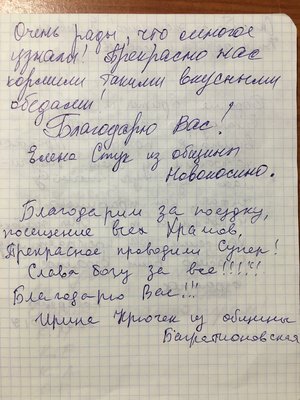 Очень рады, что многое
узнали! Прекрасно нас
кормили такими вкусными
обедами,
Благодарю Вас!
Елена Стук из общины
Новокосино.
Благодарим за поездку,
посещение всех Храмов,
Прекрасное проводили Супер!
Слава богу за все!!!!!
Благодарю Вас!!!
Ирина Крючек из общины
Багратионовская